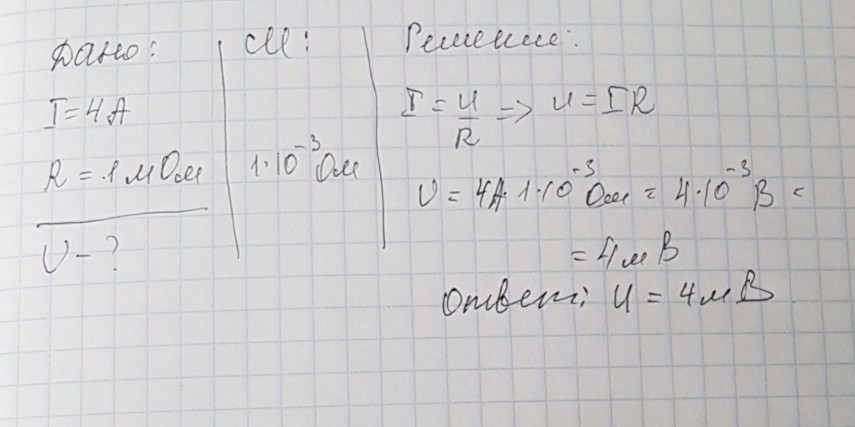 Дано:
I=4А
R = 1 мОм
U - ?
СИ:
1·10⁻³ Ом
Решение:
I = U/R => U = IR
U = 4А·1·10⁻³ Ом = 4·10⁻³ В =
= 4 мВ
Ответ: U = 4 мВ